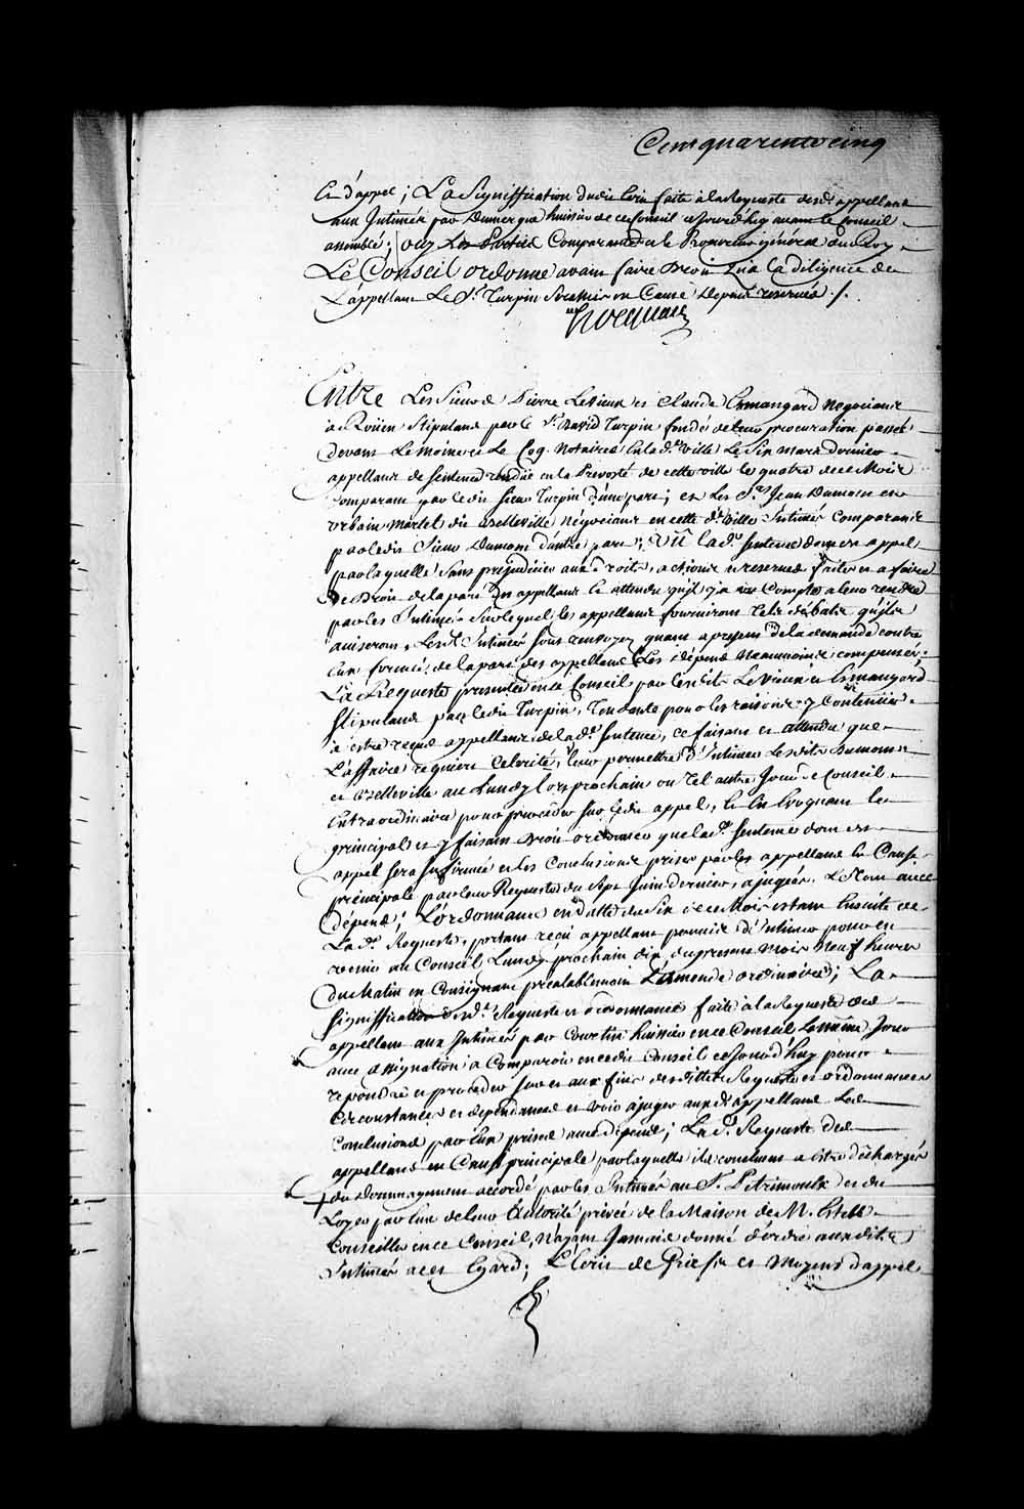 Cent quarante cinq
et d'appel; La Signiffication dudit Ecrit faite a la Requeste desd appellans
aux Intimés par Dumergue huissier de ce Conseil a Jourd'huy avant le Conseil
assemblé; ouy Les Parties Comparantes et le Procureur general du Roy
Le Conseil ordonne avant faire Droit qu'a la diligence de
L'appellant Le Sr Turpin Sera mis en Cause Depens reservés ./.
hocquart
Entre Les Sieurs Pierre Levieux et Claude Ermangard Negocians
a Roüen Stipulans par le Sr David Turpin fondé de leur procuration passée
devant Lemoine et Le Coq Notaires en lad. Ville Le Six mars dernier
appellans de Sentence rendüe en la Prevosté de cette ville le quatre de ce Mois
Comparant par ledit Sieur Turpin d'une part; et Les Srs Jean Dumont et
Urbain Martel dit Belleville Négocians en cette de Ville Intimés Comparans
par ledit Sieur Dumont d'autre part; Vû lade Sentence dont est appel
par laquelle Sans prejudicier aux droits, actions et reserves faites et a faire
de Droit de la part des appellans et attendu qu'il y a un Compte a leur rendre
par les Intimés Sur lequel les appellans fourniront tels débats qu'ils
aviseront, Lesd Intimés Sont renvoyez quant a present de la demande contre
Eux formée de la part des appellans Les dépens Neanmoins compensés
La Requeste presentée en ce Conseil par lesdits Levieux et Ermangard
Stipulans par ledit Turpin, Tendante pour les raisons y Contenües
a estre reçus appellans de lade Sentence, ce faisant et attendu que
L'affaire requiert Celerité, leur permettre d'Intimer Lesdits Dumont
et Belleville au Lundy lors prochain ou tel autre Jour de Conseil
Extraordinaire pour proceder Sur ledit appel, Et En Evoquant le
principal et y faisant Droit ordonner que lade Sentence dont est
appel sera Infirmée et les Conclusions prises par les appellans En Cause
principale par leur Requeste du Sept Juin dernier, ajugées, Le Tout avec
dépens; L'ordonnance en datte du Six de ce Mois estant Ensuite de
Lade Requeste, portant reçu appellans permis d'Intimer pour en
venir au Conseil Lundy prochain dix du present Mois neuf heures
du Matin en Consignant préalablement L'amende ordinaire; La
Signiffication desde Requeste et ordonnance faite a la Requeste des
appellans aux Intimés par Courtin huissier en ce Conseil le même Jour
avec assignation a Comparoir en cedit Conseil ce Jourd'huy pour
repondre et proceder Sur et aux fins desdittes Requeste et ordonnances
Circonstances et dependances et voir ajuger auxd appellans Les
Conclusions par Eux prises avec depens; Lad. Requeste des
appellans en Cause principale par laquelle ils concluent a estre déchargés
du Dommagement accordé par les Intimés au S. Petrimoulx et du
Loyer par Eux de leur Autorité privée de la Maison de M. Estebe
Conseiller en ce Conseil, N'ayant Jamais donné d'ordre auxdits
Intimés a cet Egard; L'Ecrit de Griefs et Moyens d'appel